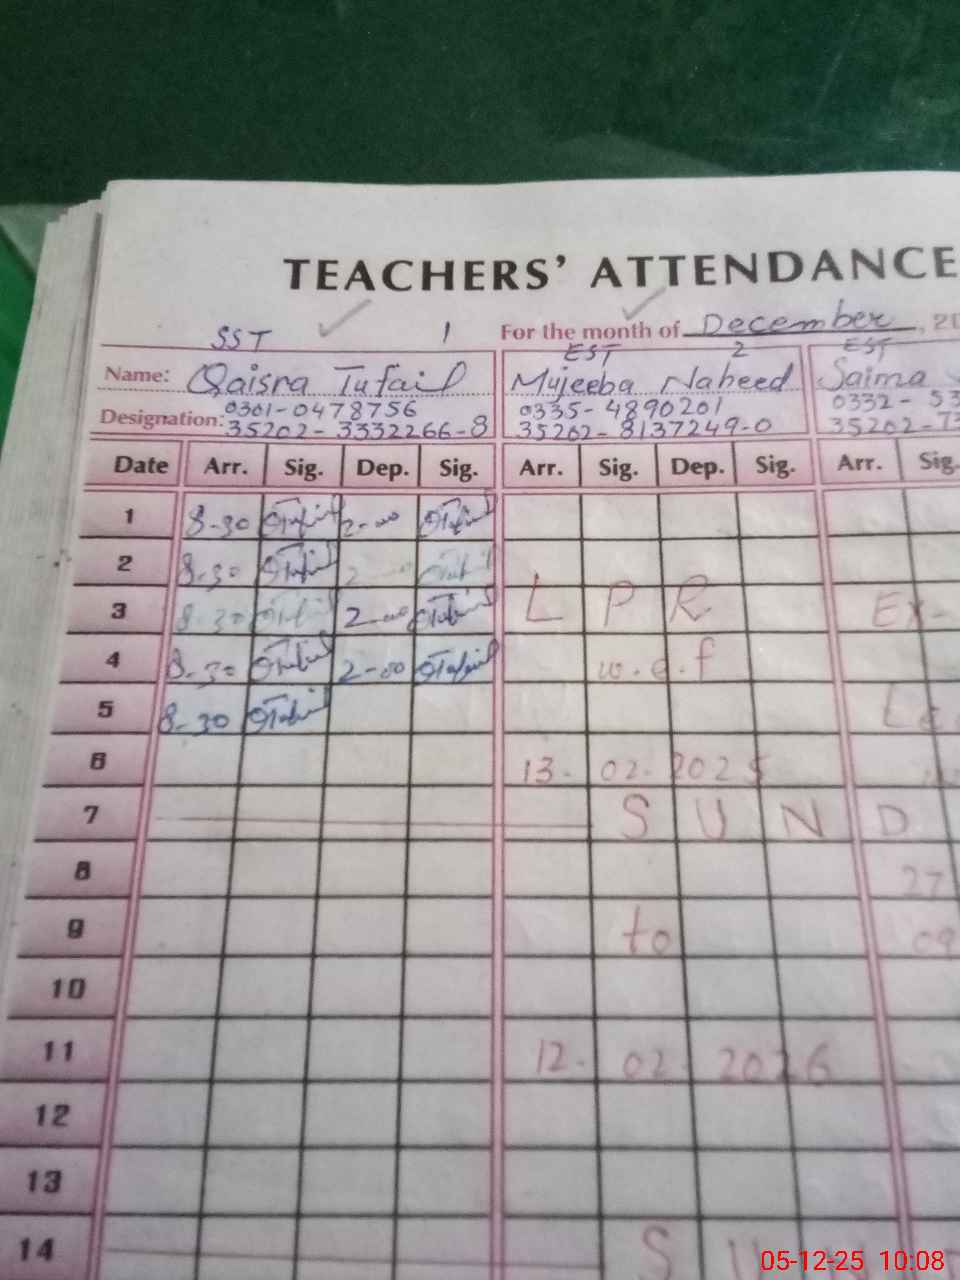 TEACHERS' ATTENDANCE
SST 1 For the month of December, 20
EST 2 EST
Name: Qaisra Tufail Mujeeba Naheed Saima
Designation: 0301-0478756 0335-4890201 0332-53
35202-3332266-8 35202-8137249-0 35202-73
Date Arr. Sig. Dep. Sig. Arr. Sig. Dep. Sig. Arr. Sig.
1 8-30 QTufail 2-00 QTufail
2 8-30 QTufail 2
3 8-30 QTufail 2-00 QTufail L P R Ex-
4 8-30 QTufail 2-00 QTufail w.e.f
5 8-30 QTufail
6 13. 02. 2025
7 S U N D
8 27
9 to 09
10
11 12. 02. 2026
12
13
14 S U
05-12-25 10:08